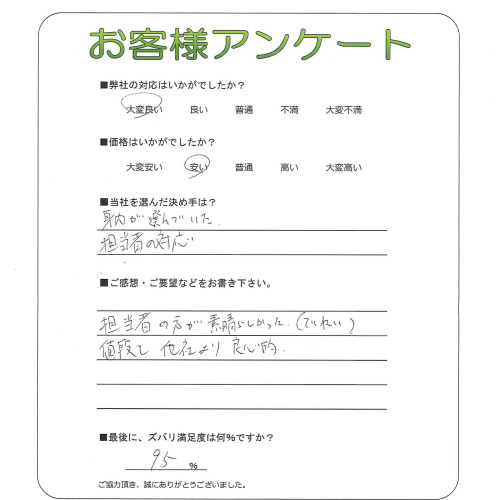 お客様アンケート
■弊社の対応はいかがでしたか？
大変良い 良い 普通 不満 大変不満
■価格はいかがでしたか？
大変安い 安い 普通 高い 大変高い
■当社を選んだ決め手は？
身内が選んでいた。
担当者の対応
■ご感想・ご要望などをお書き下さい。
担当者の方が素晴らしかった。(ていねい)
値段も他社より良心的。
■最後に、ズバリ満足度は何％ですか？
95 ％
ご協力頂き、誠にありがとうございました。